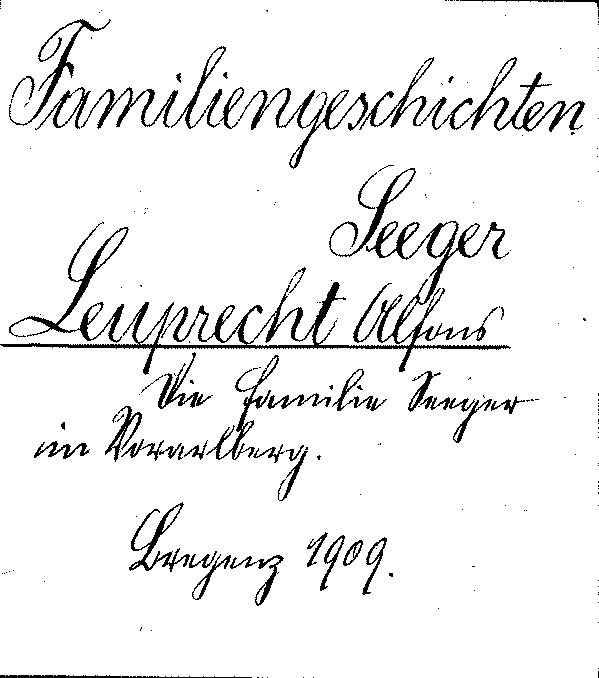 Familiengeschichten
Seeger
Leuprecht Alfons
Die Familie Seeger
in Vorarlberg.
Bregenz 1909.